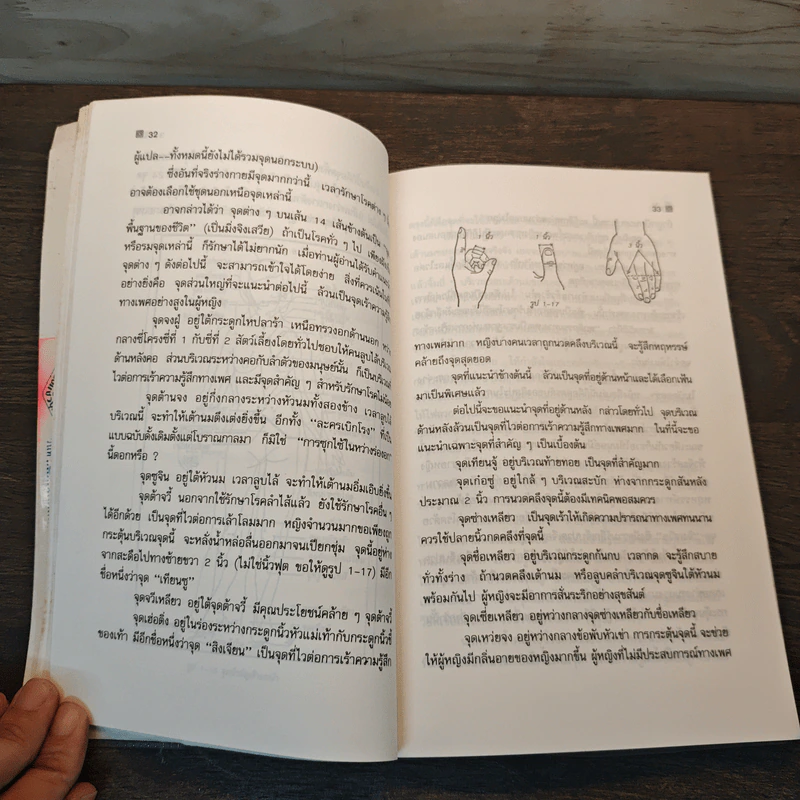 32
ผู้แปล--ทั้งหมดนี้ยังไม่ได้รวมจุดนอกระบบ)
ซึ่งอันที่จริงร่างกายมีจุดมากกว่านี้ เวลารักษาโรคต่าง ๆ
อาจต้องเลือกใช้ชุดนอกเหนือจุดเหล่านี้
อาจกล่าวได้ว่า จุดต่าง ๆ บนเส้น 14 เส้นข้างต้นเป็น
พื้นฐานของชีวิต" (เป็นมิ่งจิงเสวีย) ถ้าเป็นโรคทั่ว ๆ ไป
หรือรมจุดเหล่านี้ ก็รักษาได้ไม่ยากนัก เมื่อท่านผู้อ่านได้รับ
จุดต่าง ๆ ดังต่อไปนี้ จะสามารถเข้าใจได้โดยง่าย สิ่งที่ควรเน้น
อย่างยิ่งคือ จุดส่วนใหญ่ที่จะแนะนำต่อไปนี้ ล้วนเป็นจุดเร้าความรู้สึก
ทางเพศอย่างสูงในผู้หญิง
จุดจงฝู่ อยู่ใต้กระดูกไหปลาร้า เหนือทรวงอกด้านนอก
กลางซี่โครงซี่ที่ 1 กับซี่ที่ 2 สัตว์เลี้ยงโดยทั่วไปชอบให้คนลูบไล้
ด้านหลังคอ ส่วนบริเวณระหว่างคอกับลำตัวของมนุษย์นั้น ก็เป็นบริเวณ
ไวต่อการเร้าความรู้สึกทางเพศ และมีจุดสำคัญ ๆ สำหรับรักษาโรค
จุดต้านจง อยู่กึ่งกลางระหว่างหัวนมทั้งสองข้าง เวลาลูบไล้
บริเวณนี้ จะทำให้เต้านมตึงเต่งยิ่งขึ้น อีกทั้ง "ละครเบิกโรง" ที่เป็น
แบบฉบับดั้งเดิมตั้งแต่โบราณกาลมา ก็มิใช่ "การซุกไซ้ในหว่างร่องอก"
นี้ดอกหรือ ?
จุดซูจิน อยู่ใต้หัวนม เวลาลูบไล้ จะทำให้เต้านมอิ่มเอิบยิ่งขึ้น
จุดต้าจวี้ นอกจากใช้รักษาโรคลำไส้แล้ว ยังใช้รักษาโรคอื่น ๆ
ได้อีกด้วย เป็นจุดที่ไวต่อการเล้าโลมมาก หญิงจำนวนมากขอเพียงถูก
กระตุ้นบริเวณจุดนี้ จะหลั่งน้ำหล่อลื่นออกมาจนเปียกชุ่ม จุดนี้อยู่ห่าง
จากสะดือไปทางซ้ายขวา 2 นิ้ว (ไม่ใช่นิ้วฟุต ขอให้ดูรูป 1-17) มีอีก
ชื่อหนึ่งว่าจุด "เทียนซู"
จุดจวีเหลียว อยู่ใต้จุดต้าจวี้ มีคุณประโยชน์คล้าย ๆ จุดต้าจวี้
จุดเฮ่อติ่ง อยู่ในร่องระหว่างกระดูกนิ้วหัวแม่เท้ากับกระดูกนิ้วชี้
ของเท้า มีอีกชื่อหนึ่งว่าจุด "สิงเจียน" เป็นจุดที่ไวต่อการเร้าความรู้สึก
33
1 นิ้ว
1 นิ้ว
รูป 1-17
ทางเพศมาก หญิงบางคนเวลาถูกนวดคลึงบริเวณนี้ จะรู้สึกหฤหรรษ์
คล้ายถึงจุดสุดยอด
จุดที่แนะนำข้างต้นนี้ ล้วนเป็นจุดที่อยู่ด้านหน้าและได้เลือกเฟ้น
มาเป็นพิเศษแล้ว
ต่อไปนี้จะขอแนะนำจุดที่อยู่ด้านหลัง กล่าวโดยทั่วไป จุดบริเวณ
ด้านหลังล้วนเป็นจุดที่ไวต่อการเร้าความรู้สึกทางเพศมาก ในที่นี้จะขอ
แนะนำเฉพาะจุดที่สำคัญ ๆ เป็นเบื้องต้น
จุดเทียนจู้ อยู่บริเวณท้ายทอย เป็นจุดที่สำคัญมาก
จุดเก่อซู่ อยู่ใกล้ ๆ บริเวณสะบัก ห่างจากกระดูกสันหลัง
ประมาณ 2 นิ้ว การนวดคลึงจุดนี้ต้องมีเทคนิคพอสมควร
จุดซ่างเหลียว เป็นจุดเร้าให้เกิดความปรารถนาทางเพศทนนาน
ควรใช้ปลายนิ้วกดคลึงที่จุดนี้
จุดซื่อเหลียว อยู่บริเวณกระดูกก้นกบ เวลากด จะรู้สึกสบาย
ทั่วทั้งร่าง ถ้านวดคลึงเต้านม หรือลูบคลำบริเวณจุดซูจินใต้หัวนม
พร้อมกันไป ผู้หญิงจะมีอาการสั่นระริกอย่างสุขสันต์
จุดเซี่ยเหลียว อยู่หว่างกลางจุดซ่างเหลียวกับซื่อเหลียว
จุดเหว่ยจง อยู่หว่างกลางข้อพับหัวเข่า การกระตุ้นจุดนี้ จะช่วย
ให้ผู้หญิงมีกลิ่นอายของหญิงมากขึ้น ผู้หญิงที่ไม่มีประสบการณ์ทางเพศ